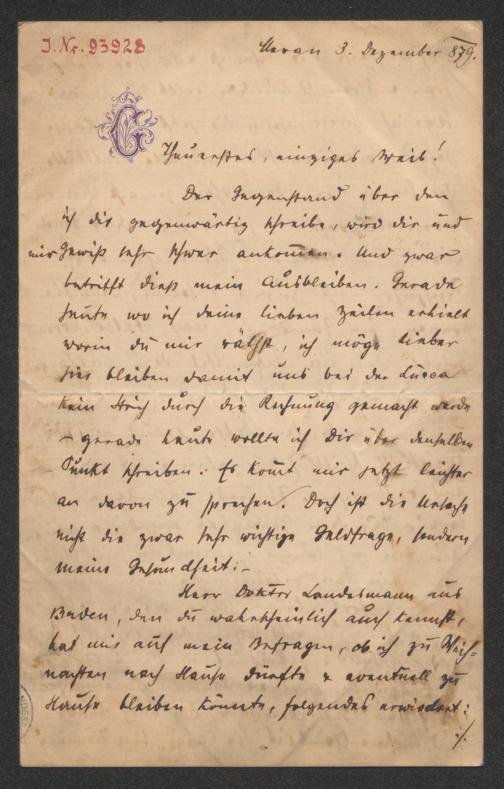 J. Nr. 93928
Meran 3. Dezember 879.
G
Theuerstes, einziges Weib!
Der Gegenstand über den
ich dir gegenwärtig schreibe, wird dir und
mir gewiß sehr schwer ankommen. Und zwar
betrifft dieß mein Ausbleiben. Gerade
heute wo ich deine lieben Zeilen erhielt
worin du mir räthst, ich möge lieber
hier bleiben damit uns bei der Lucca
kein Strich durch die Rechnung gemacht werde
– gerade heute wollte ich Dir über denselben
Punkt schreiben. Es komt mir jetzt leichter
an davon zu sprechen. Doch ist die Ursache
nicht die zwar sehr wichtige Geldfrage, sondern
meine Gesundheit: –
Herr Doktor Landesmann aus
Baden, den du wahrscheinlich auch kennst,
hat mir auf mein Befragen, ob ich zu Weih=
nachten nach Hause dürfte & eventuell zu
Hause bleiben könnte, folgendes erwiedert:
./.